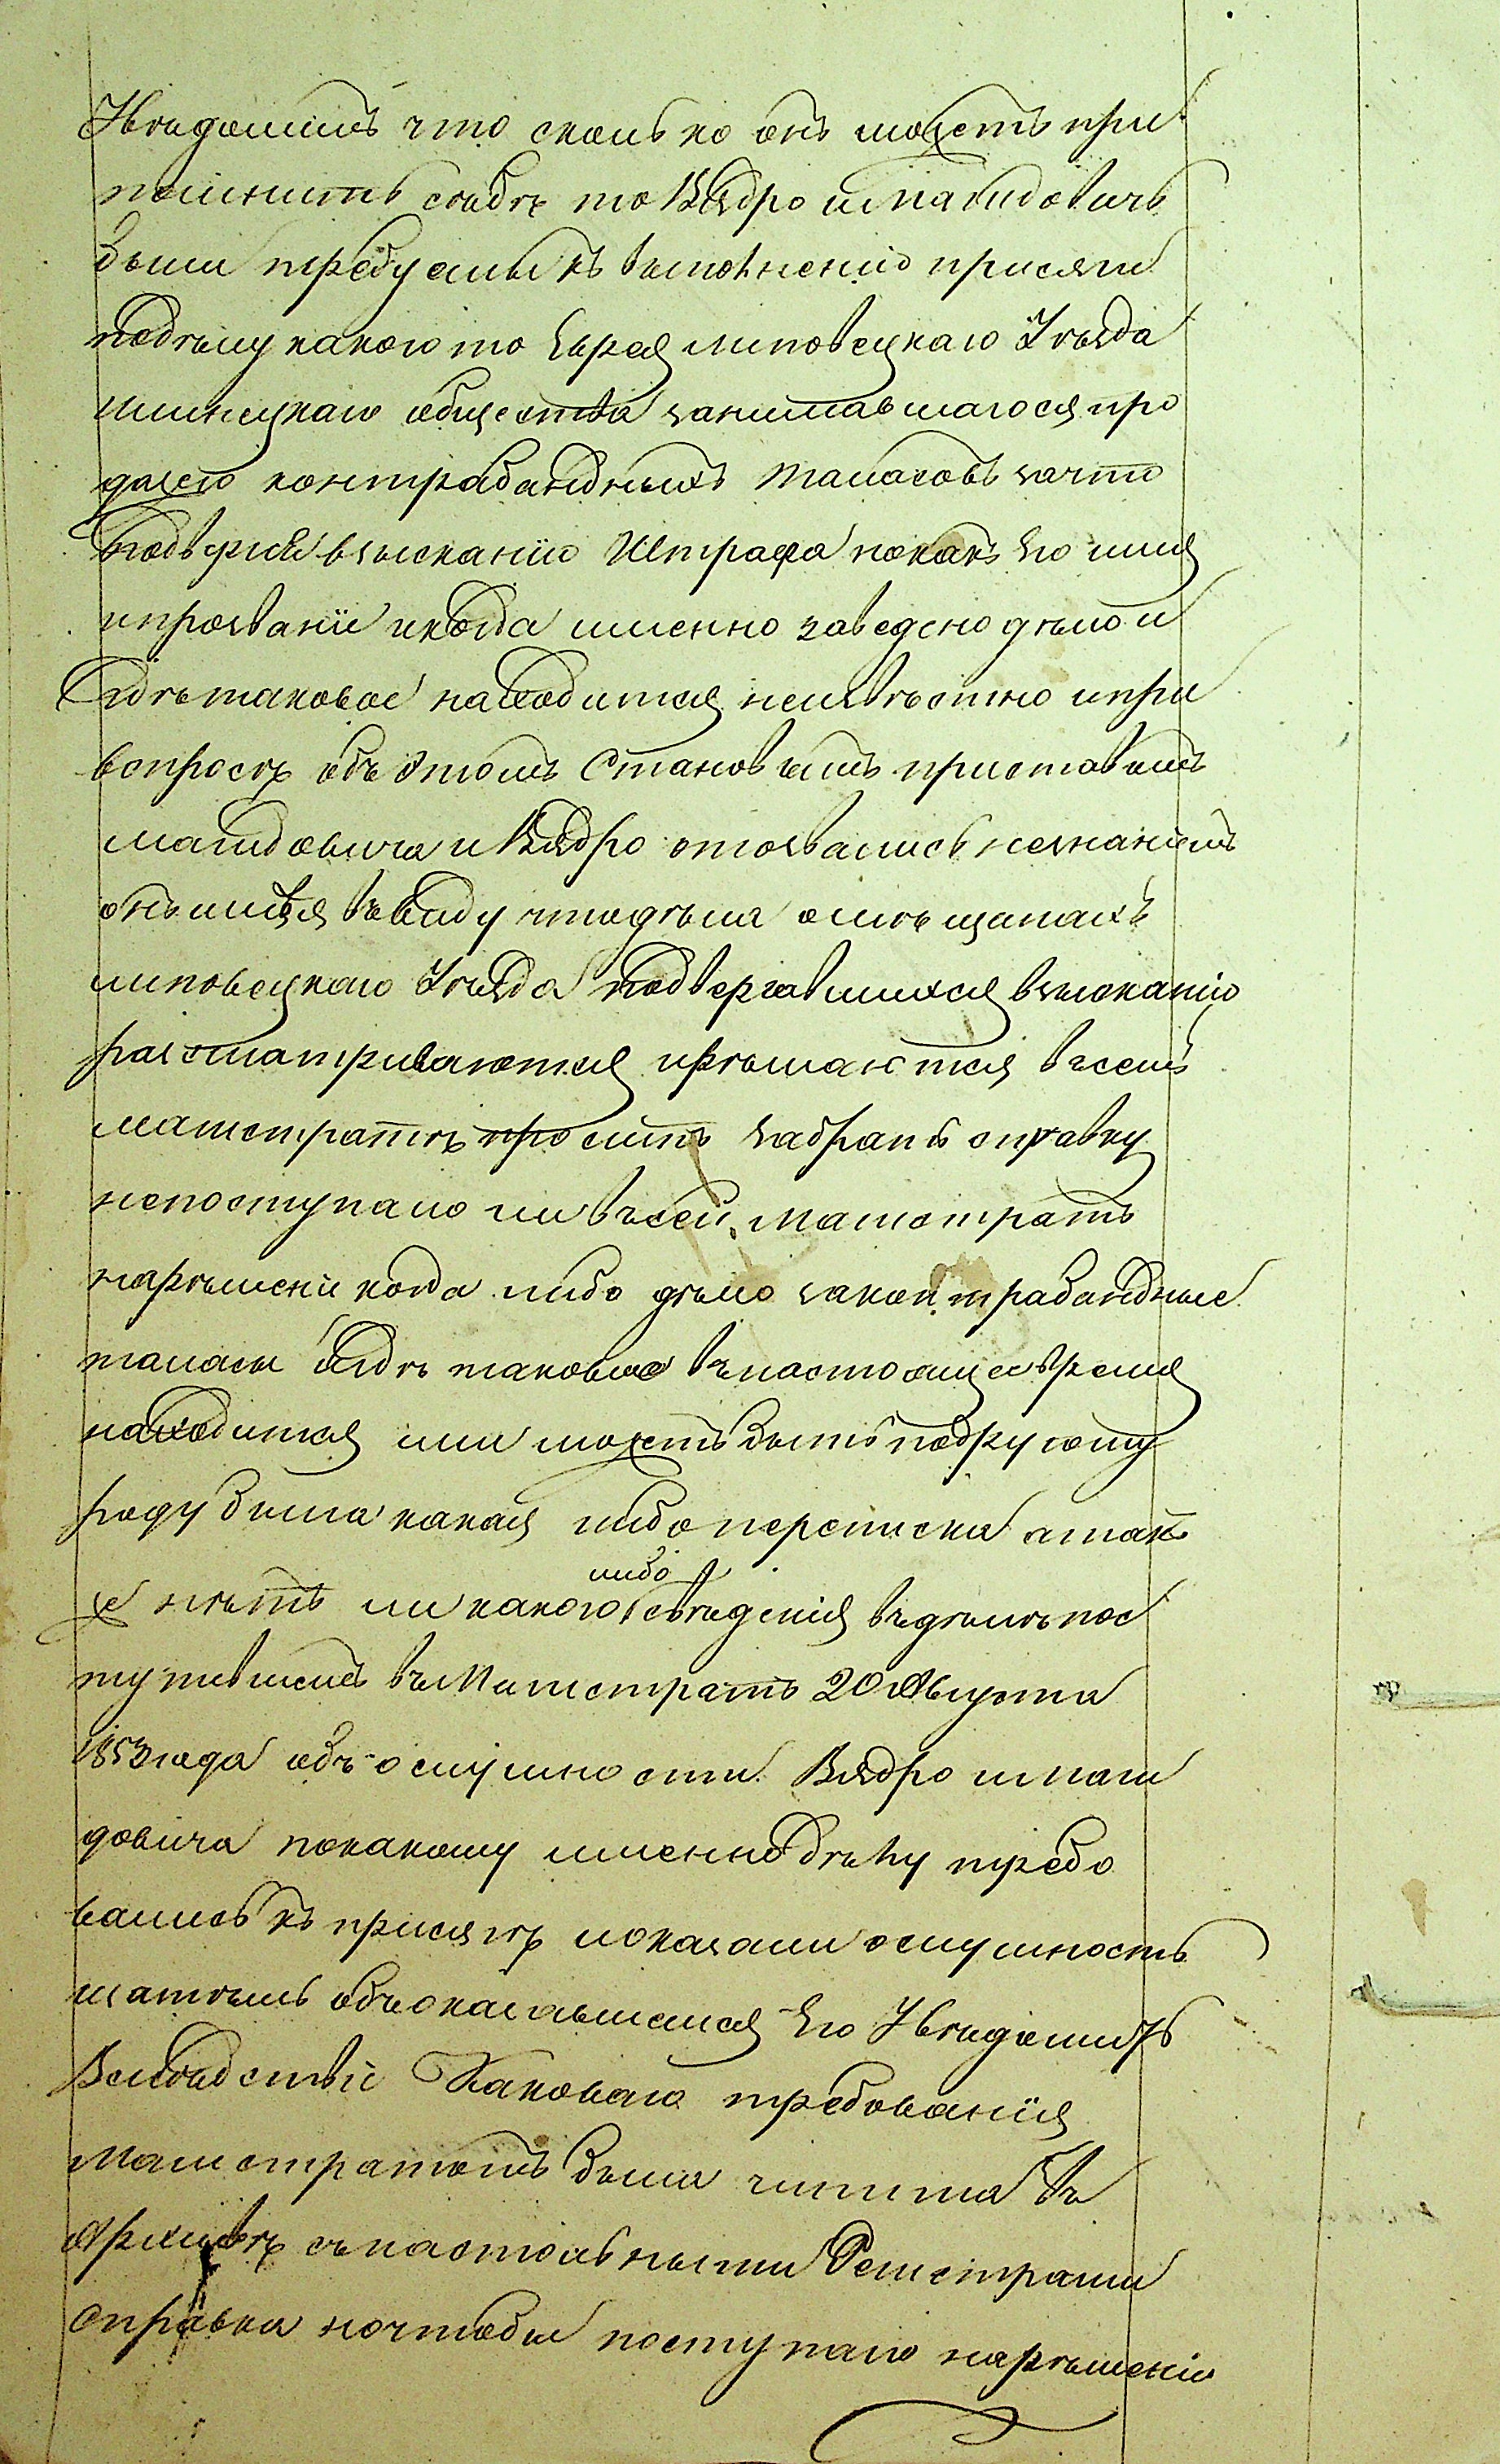 Увѣдомитъ что сколько онъ можетъ при
помнить себѣ то Вядро и Магидовичъ
были требуемы къ выполненію присяги
подѣлу какого то Еврея липовецкаго Уѣзда
илинецкаго общества занимавшагося про
дажею контрабандныхъ Талесовъ зачто
подвергли взысканію Штрафа но какъ Его имя
ипрозваніе икогда именно заведено дѣло и
Гдѣ таковое находится неизвѣстно ипри
вопросѣ объ этомъ Становымъ приставомъ
магидовича и Вядро отозвались незнаніемъ
онъ имѣя въ виду что дѣла омѣщанахъ
липовецкаго Уѣзда подвергавшихся взысканію
разсматриваются ирѣшаются въ семъ
магистратѣ проситъ забрать справку
непоступало ли въ сей магистратъ
нарѣшеніе когда либо дѣло законтрабандные
талесы игдѣ таковое въ настоящее время
находится или можетъ быть подругому
роду была какая либо переписка а так
же нѣтъ ли какого либо свѣденія въ дѣлѣ пос
тупившемъ въ Магистратъ 20 Августа
1853 года объ ослушности Вядро и маги
довича покакому именно дѣлу требо
вались къ присягѣ и оказали ослушность
и затѣмъ объ оказавшемся Его Увѣдомить
Вслѣдствіе Каковаго требованія
магистратомъ была чинима въ
Архивѣ съ настольными Регистрами
справка но чтобы поступало нарѣшеніе